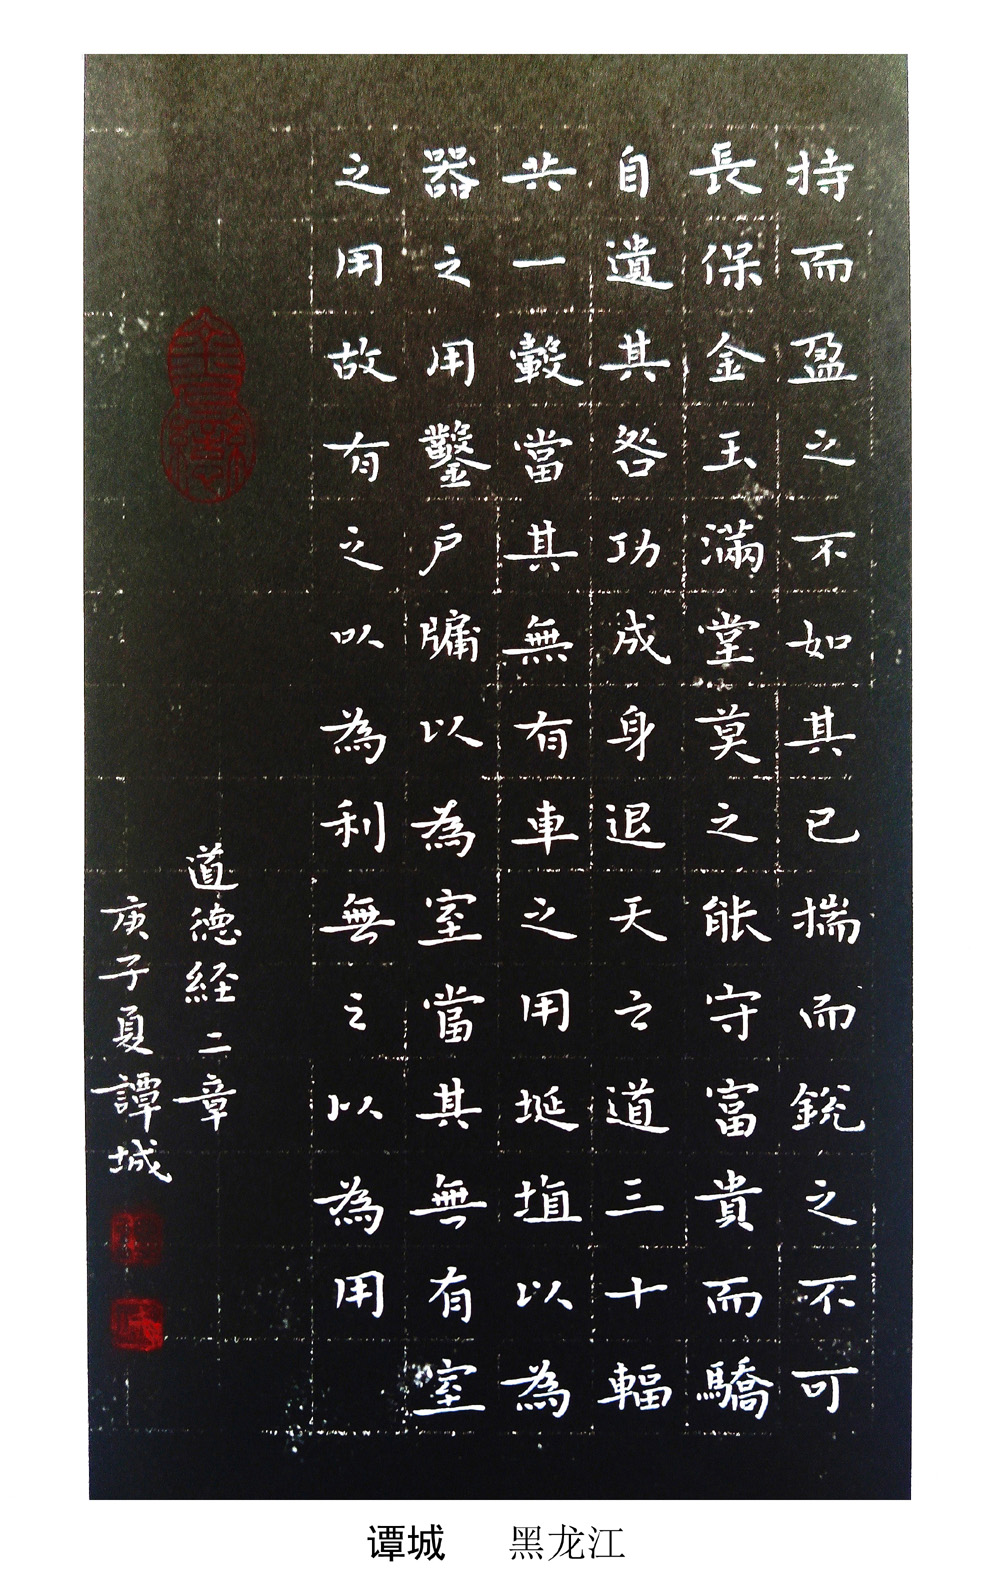 持而盈之不如其已揣而銳之不可
長保金玉滿堂莫之能守富貴而驕
自遺其咎功成身退天之道三十輻
共一轂當其無有車之用埏埴以為
器之用鑿户牖以為室當其無有室
之用故有之以為利無之以為用
道德経二章
庚子夏譚城
谭城 黑龙江